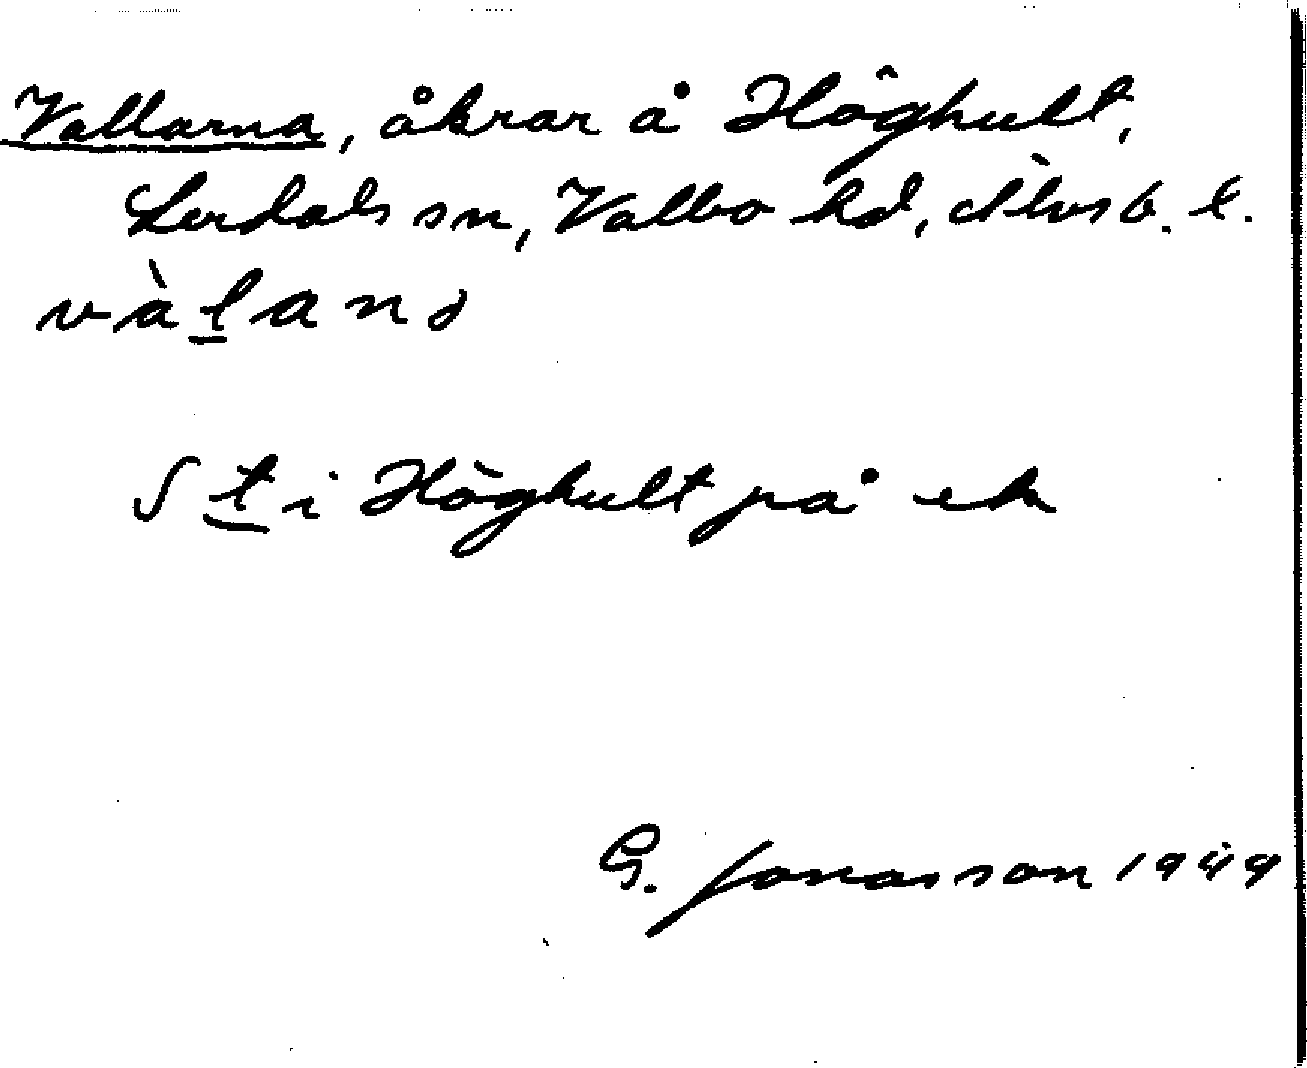 Vallarna, åkrar å Höghult,
Lerdals sn, Valbo hd, Älvsb. l.
vàlanə
St i Höghult på ek
G. Jonasson 1949